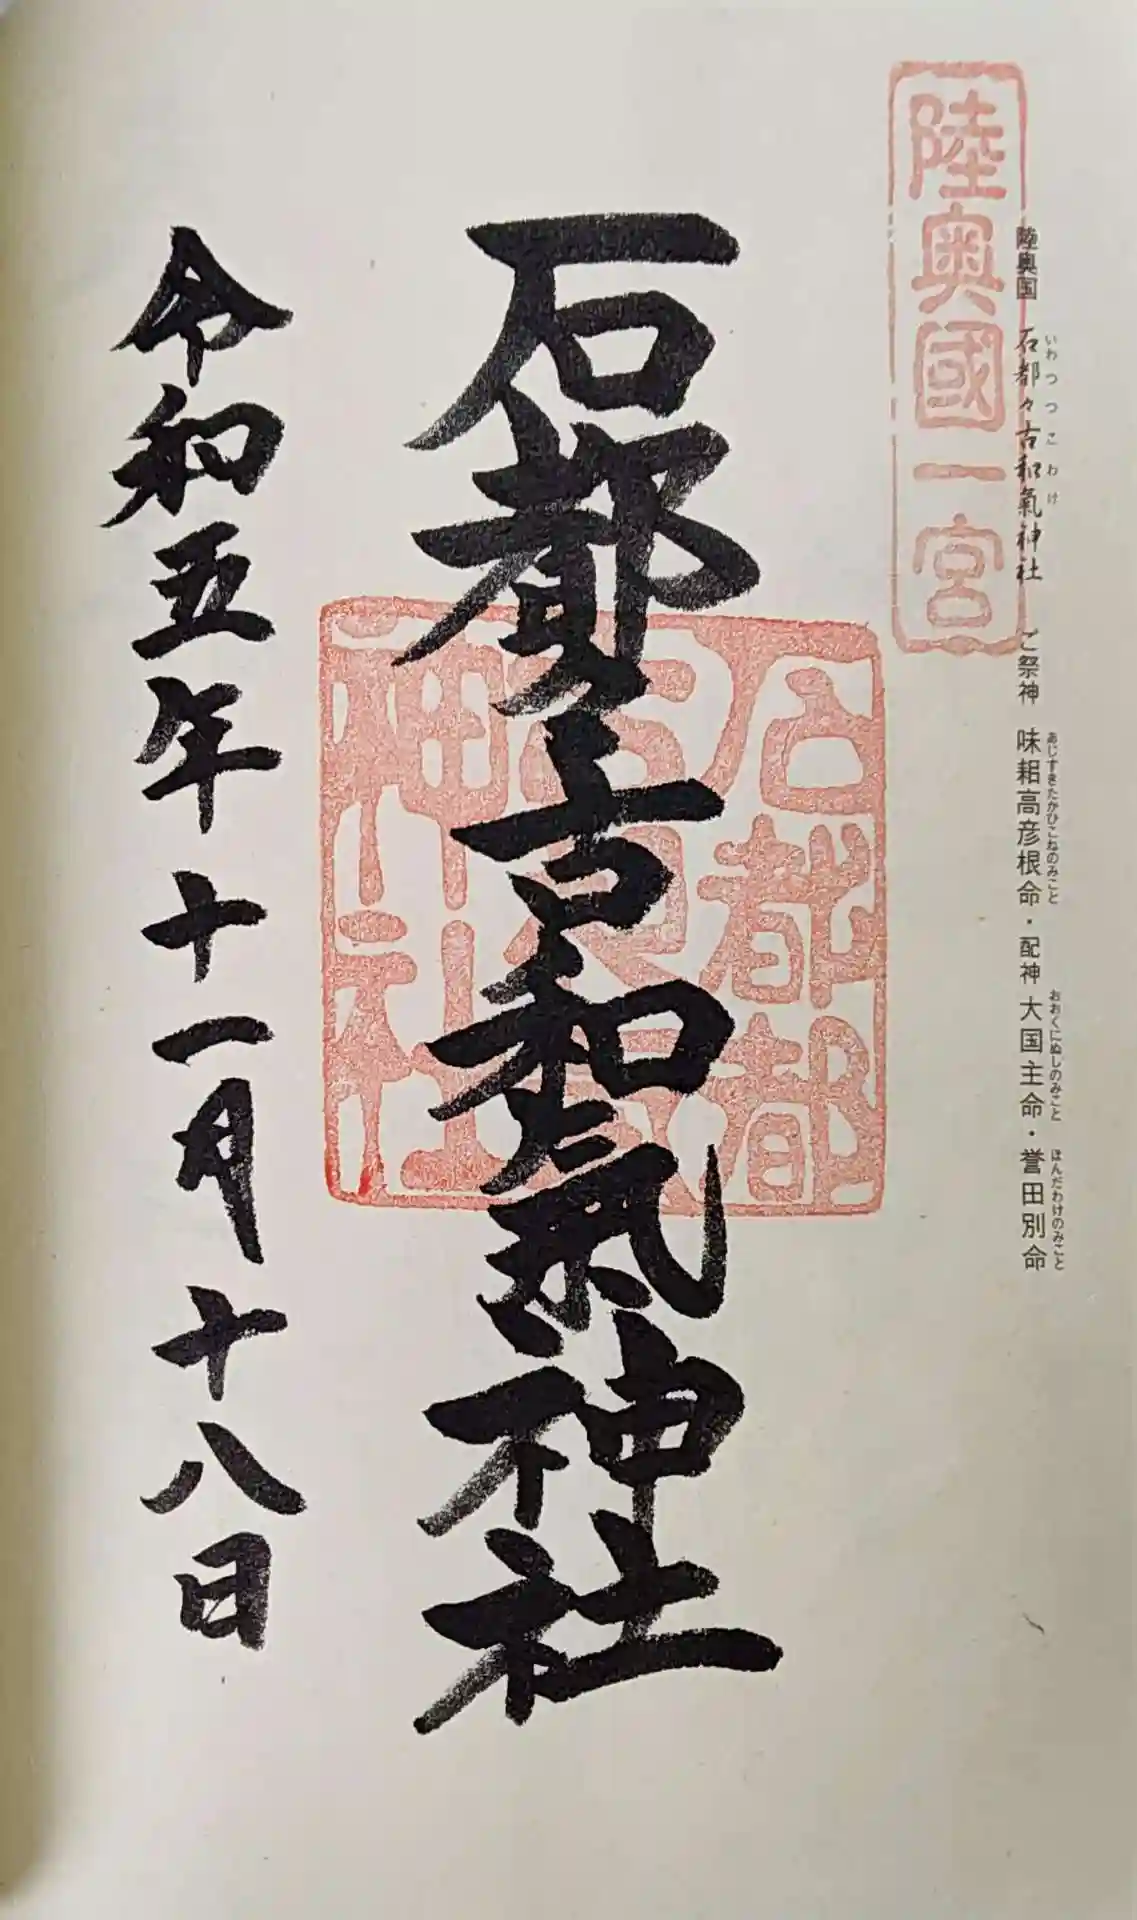 陸奥國一宮
陸奥国 石都々古和氣神社 ご祭神 味耜高彦根命・配神 大国主命・誉田別命
いわつつこわけ
あじすきたかひこねのみこと
おおくにぬしのみこと
ほんだわけのみこと
石都々古和氣神社
令和五年十一月十八日